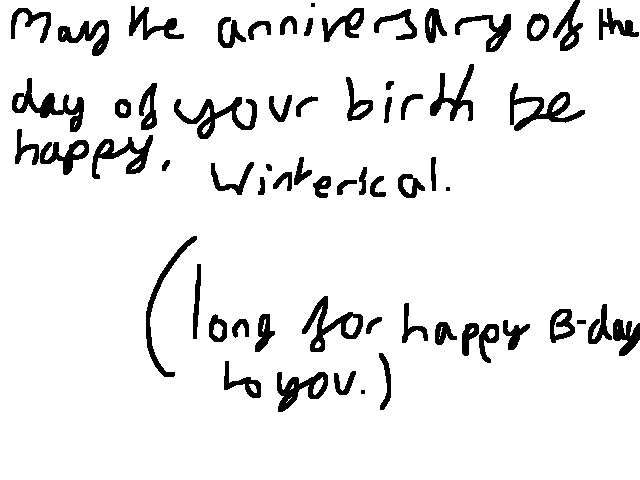 May the anniversary of the
day of your birth be
happy. Winterscal.
(long for happy B-day
to you.)